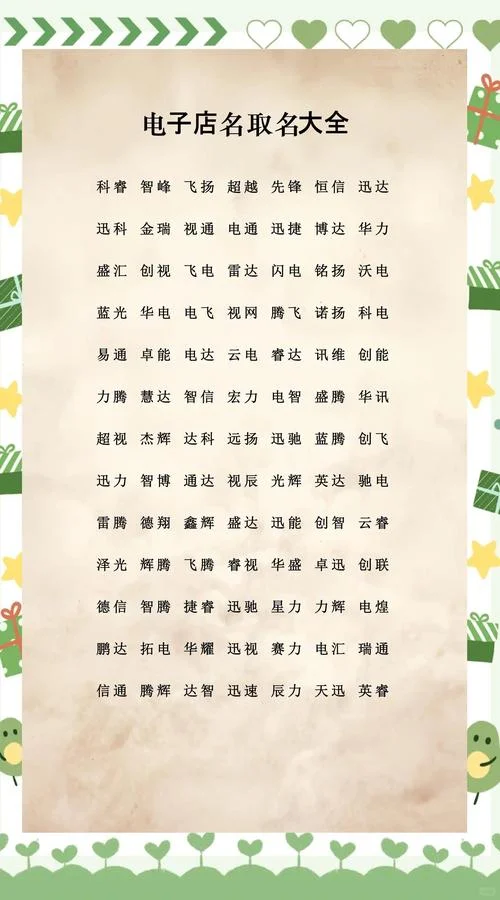 电子店名取名大全
科睿 智峰 飞扬 超越 先锋 恒信 迅达
迅科 金瑞 视通 电通 迅捷 博达 华力
盛汇 创视 飞电 雷达 闪电 铭扬 沃电
蓝光 华电 电飞 视网 腾飞 诺扬 科电
易通 卓能 电达 云电 睿达 讯维 创能
力腾 慧达 智信 宏力 电智 盛腾 华讯
超视 杰辉 达科 远扬 迅驰 蓝腾 创飞
迅力 智博 通达 视辰 光辉 英达 驰电
雷腾 德翔 鑫辉 盛达 迅能 创智 云睿
泽光 辉腾 飞腾 睿视 华盛 卓迅 创联
德信 智腾 捷睿 迅驰 星力 力辉 电煌
鹏达 拓电 华耀 迅视 赛力 电汇 瑞通
信通 腾辉 达智 迅速 辰力 天迅 英睿